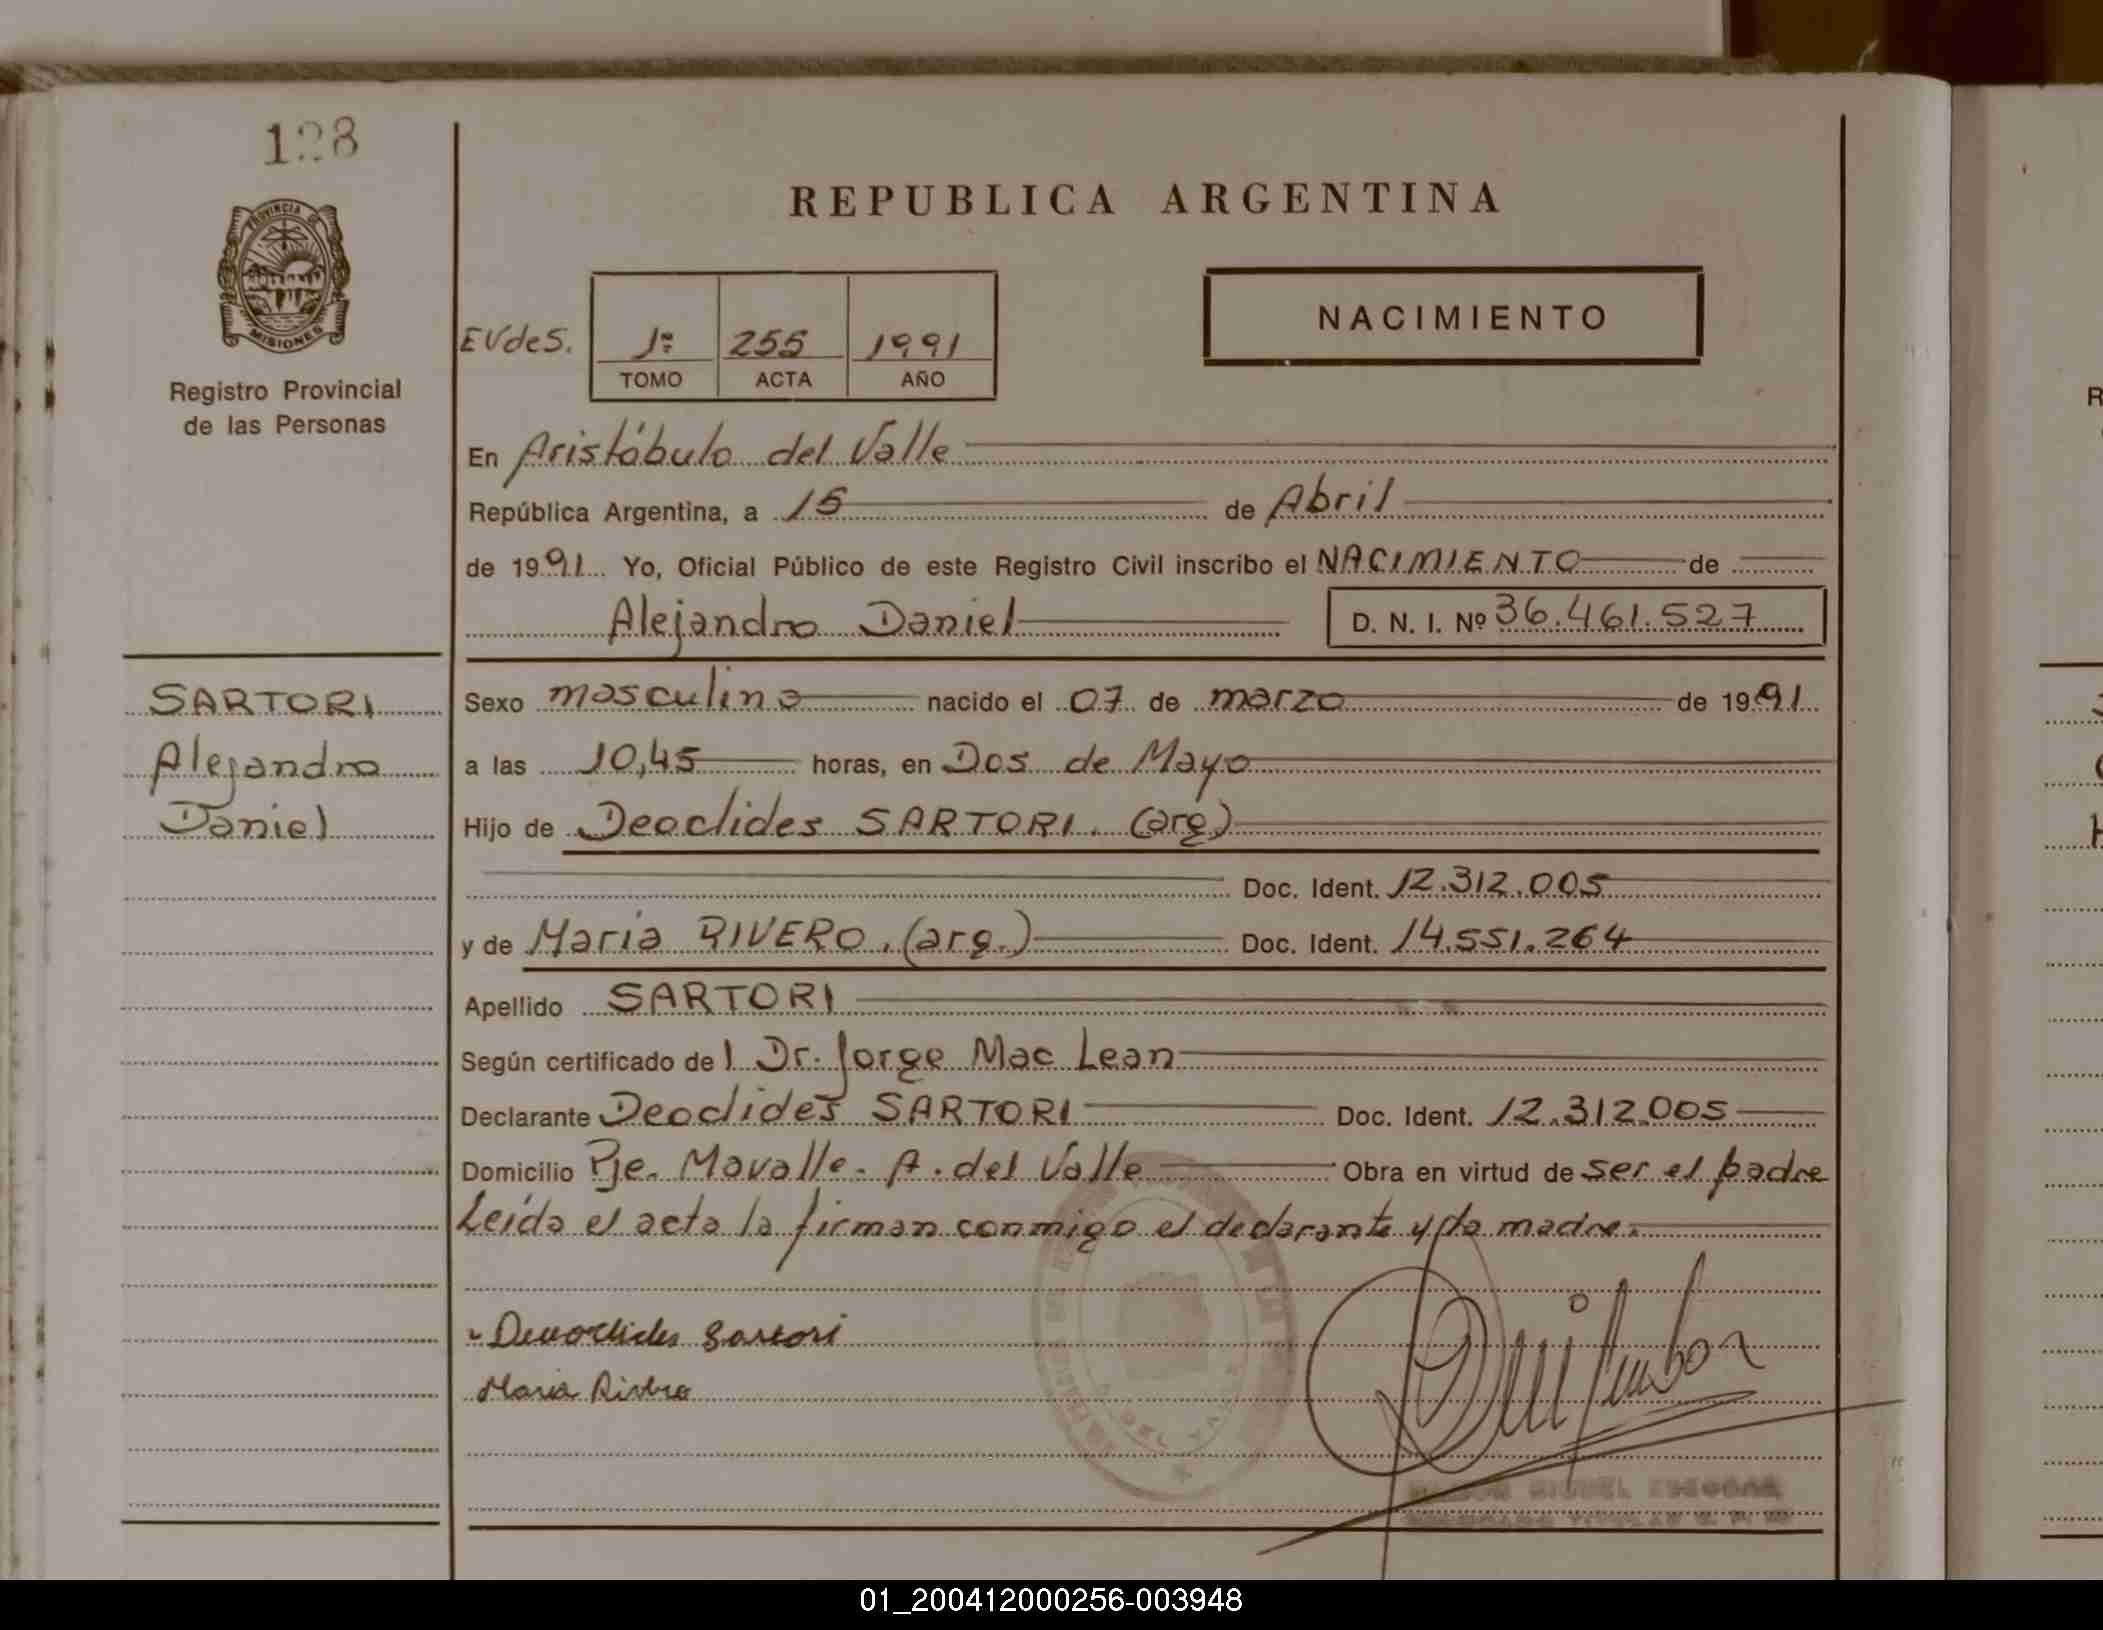 128
PROVINCIA DE
MISIONES
Registro Provincial
de las Personas
REPUBLICA ARGENTINA
EVdeS. 1º 255 1991
TOMO ACTA AÑO
NACIMIENTO
En Aristóbulo del Valle
República Argentina, a 15 de Abril
de 1991 Yo, Oficial Público de este Registro Civil inscribo el NACIMIENTO de
Alejandro Daniel D. N. I. Nº 36.461.527
SARTORI
Alejandro
Daniel
Sexo masculino nacido el 07 de marzo de 1991
a las 10,45 horas, en Dos de Mayo
Hijo de Deoclides SARTORI. (arg)
Doc. Ident. 12.312.005
y de Maria RIVERO. (arg.) Doc. Ident. 14.551.264
Apellido SARTORI
Según certificado del Dr. Jorge Mac Lean
Declarante Deoclides SARTORI Doc. Ident. 12.312.005
Domicilio Pje. Mavalle. A. del Valle Obra en virtud de ser el padre
Leída el acta la firman conmigo el declarante y la madre.
Deuoclides Sartori
Maria Rivero
DEL
MIGUEL ESCOBAR
01_200412000256-003948